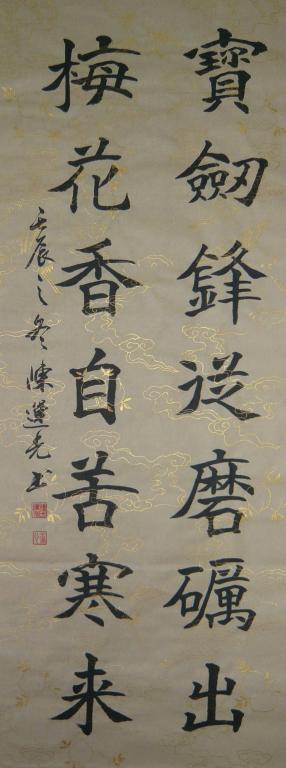 寶劒鋒從磨礪出
梅花香自苦寒来
壬辰之冬陳蓮光书